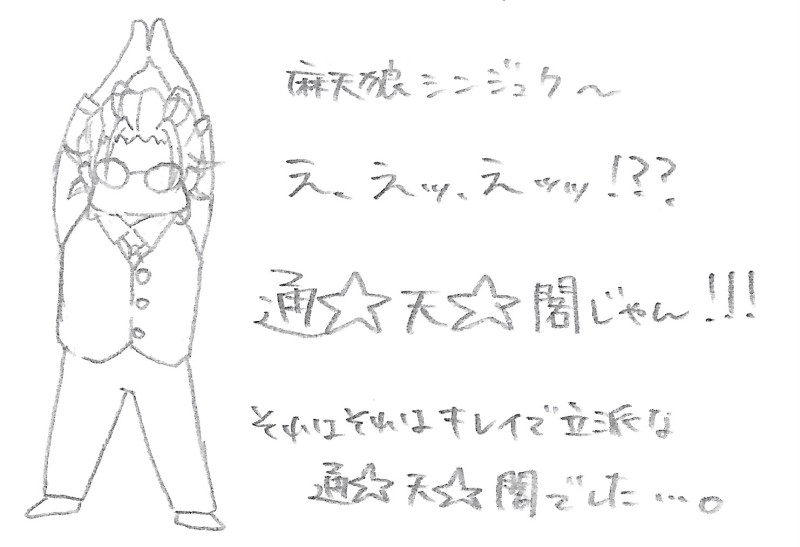 麻天狼シンジュク〜
え、えッ、えッッ!??
通☆天☆閣じゃん!!!
それはそれはキレイで立派な
通☆天☆閣でした…。